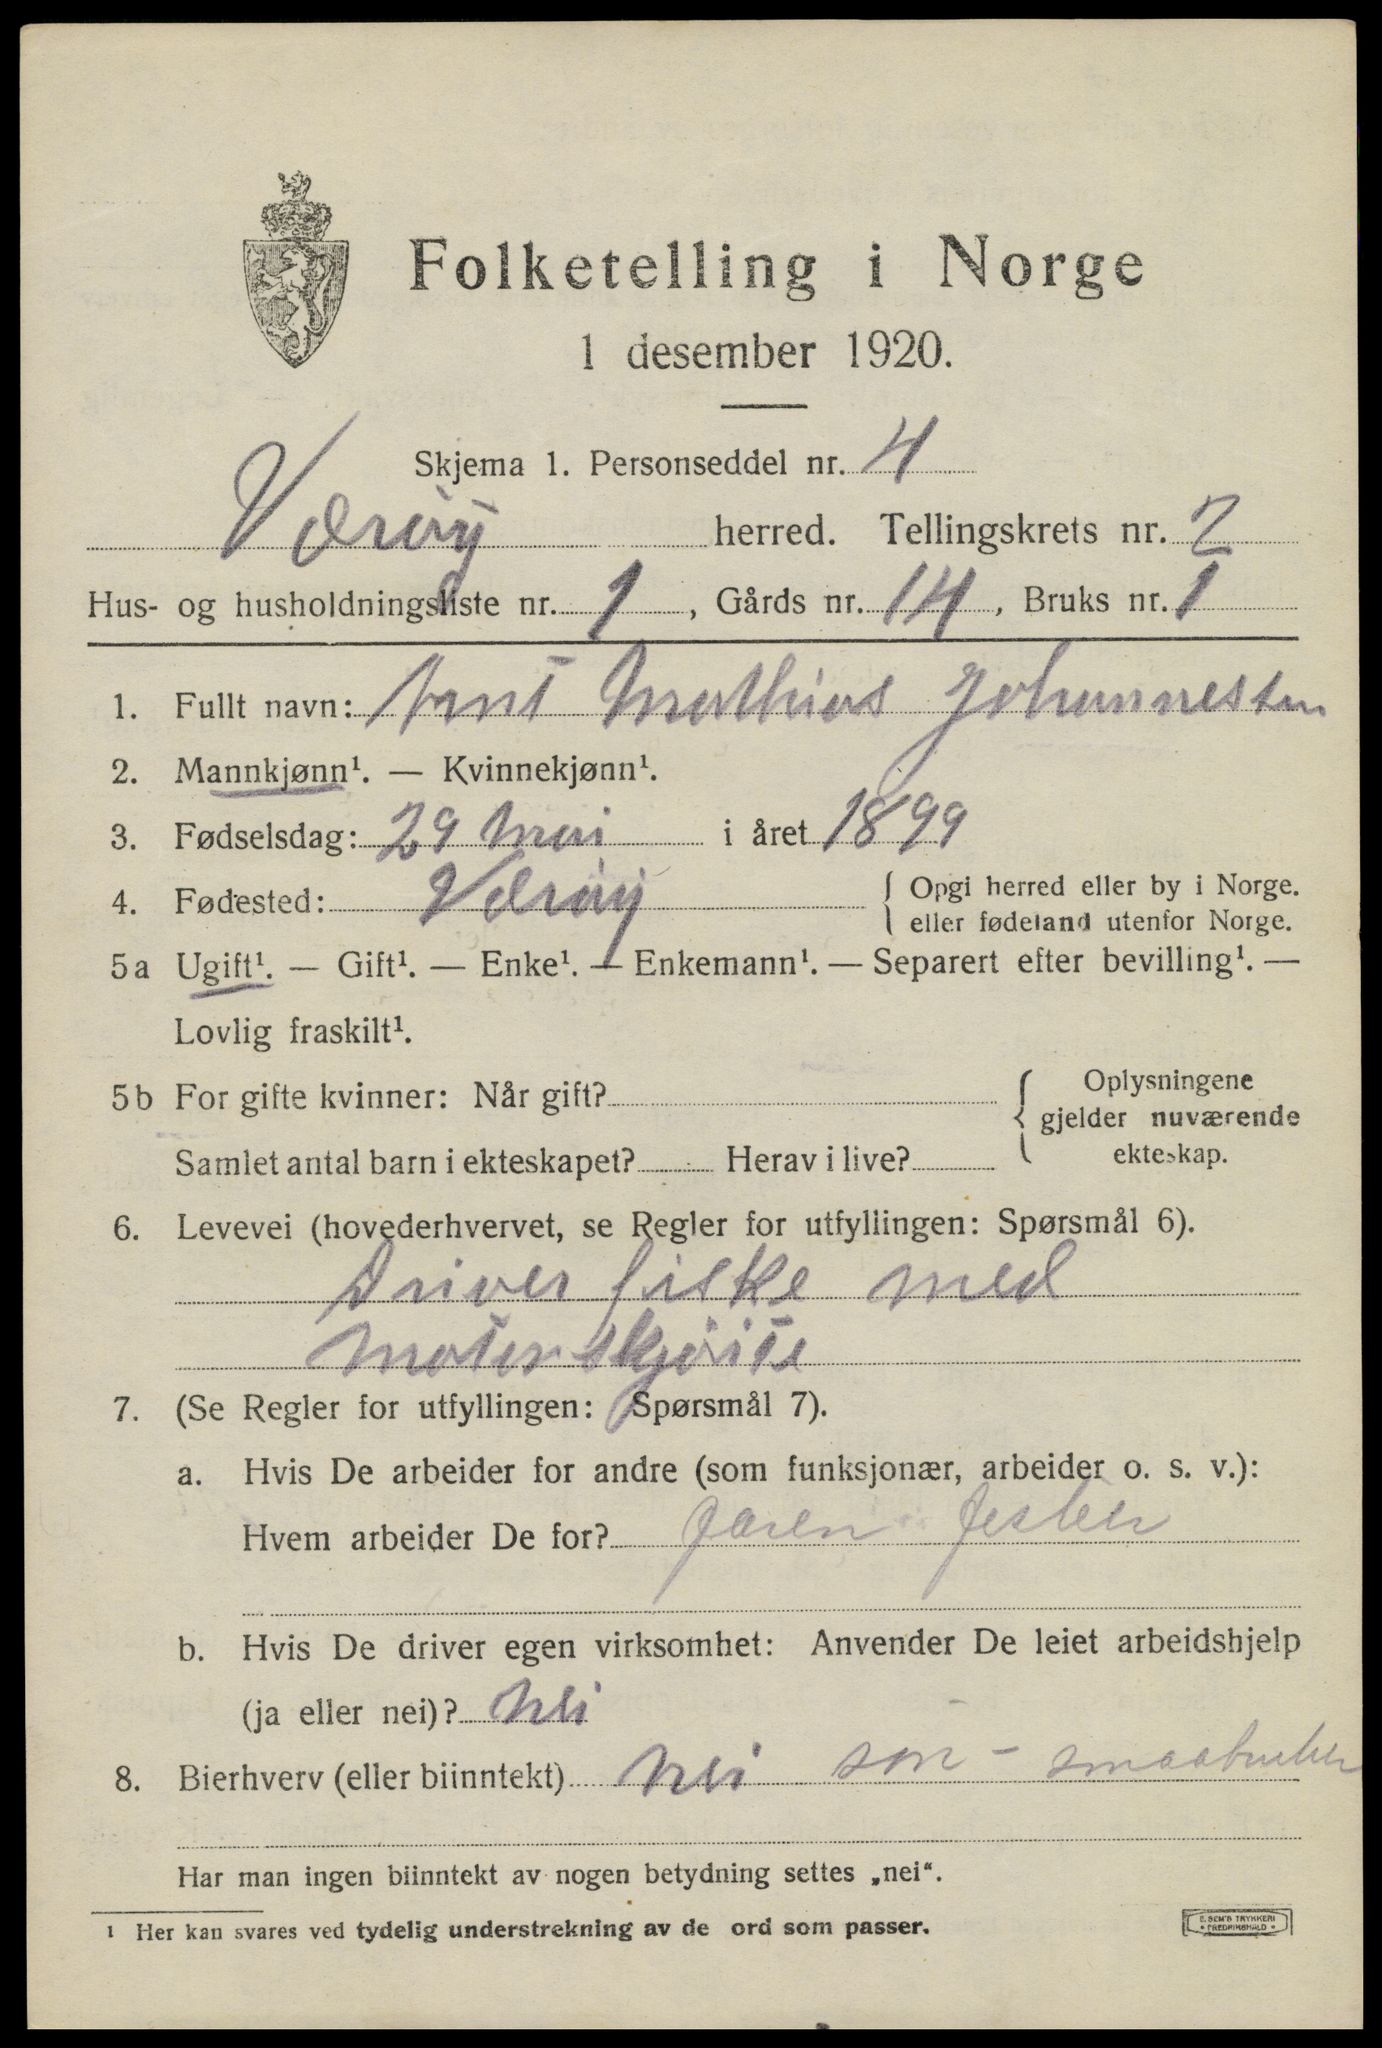 Folketelling i Norge
1 desember 1920.
Skjema 1. Personseddel nr. 4
Værøy herred. Tellingskrets nr. 2
Hus- og husholdningsliste nr. 1, Gårds nr. 14, Bruks nr. 1
1. Fullt navn: Arnt Mathias Johannessen
2. Mannkjønn¹. — Kvinnekjønn¹.
3. Fødselsdag: 29 Mai i året 1899
4. Fødested: Værøy { Opgi herred eller by i Norge.
eller fødeland utenfor Norge.
5a Ugift¹. — Gift¹. — Enke¹. — Enkemann¹. — Separert efter bevilling¹. —
Lovlig fraskilt¹.
5b For gifte kvinner: Når gift? { Oplysningene
gjelder nuværende
Samlet antal barn i ekteskapet? Herav i live? ekteskap.
6. Levevei (hovederhvervet, se Regler for utfyllingen: Spørsmål 6).
Driver fiske med
Motorskjøite
7. (Se Regler for utfyllingen: Spørsmål 7).
a. Hvis De arbeider for andre (som funksjonær, arbeider o. s. v.):
Hvem arbeider De for?
b. Hvis De driver egen virksomhet: Anvender De leiet arbeidshjelp
(ja eller nei)? Nei
8. Bierhverv (eller biinntekt) Nei søn - smaabruker
Har man ingen biinntekt av nogen betydning settes „nei“.
1 Her kan svares ved tydelig understrekning av de ord som passer.
E. SEM'S TRYKKERI
• FREDRIKSHALD •